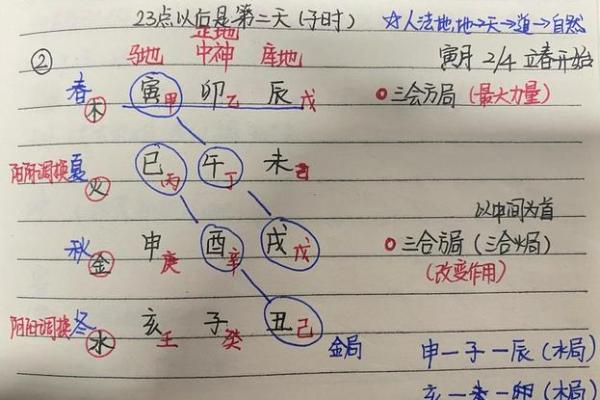 23点以后是第二天(子时)
☆人法地,地→天→道→自然
正地
② 马地 中神 库地
寅月 2/4 立春开始
春 木 寅甲 卯乙 辰戊
三会方局(最大力量)
阴阳调换 夏 火 巳丙 午丁 未己
以中间为首
秋 金 申庚 酉辛 戌戊
三合方局(三合火局)
(改变作用)
阴阳调换 冬 水 亥壬 子癸 丑己
金局
申一子一辰(水局)
亥一未一卯(木局)